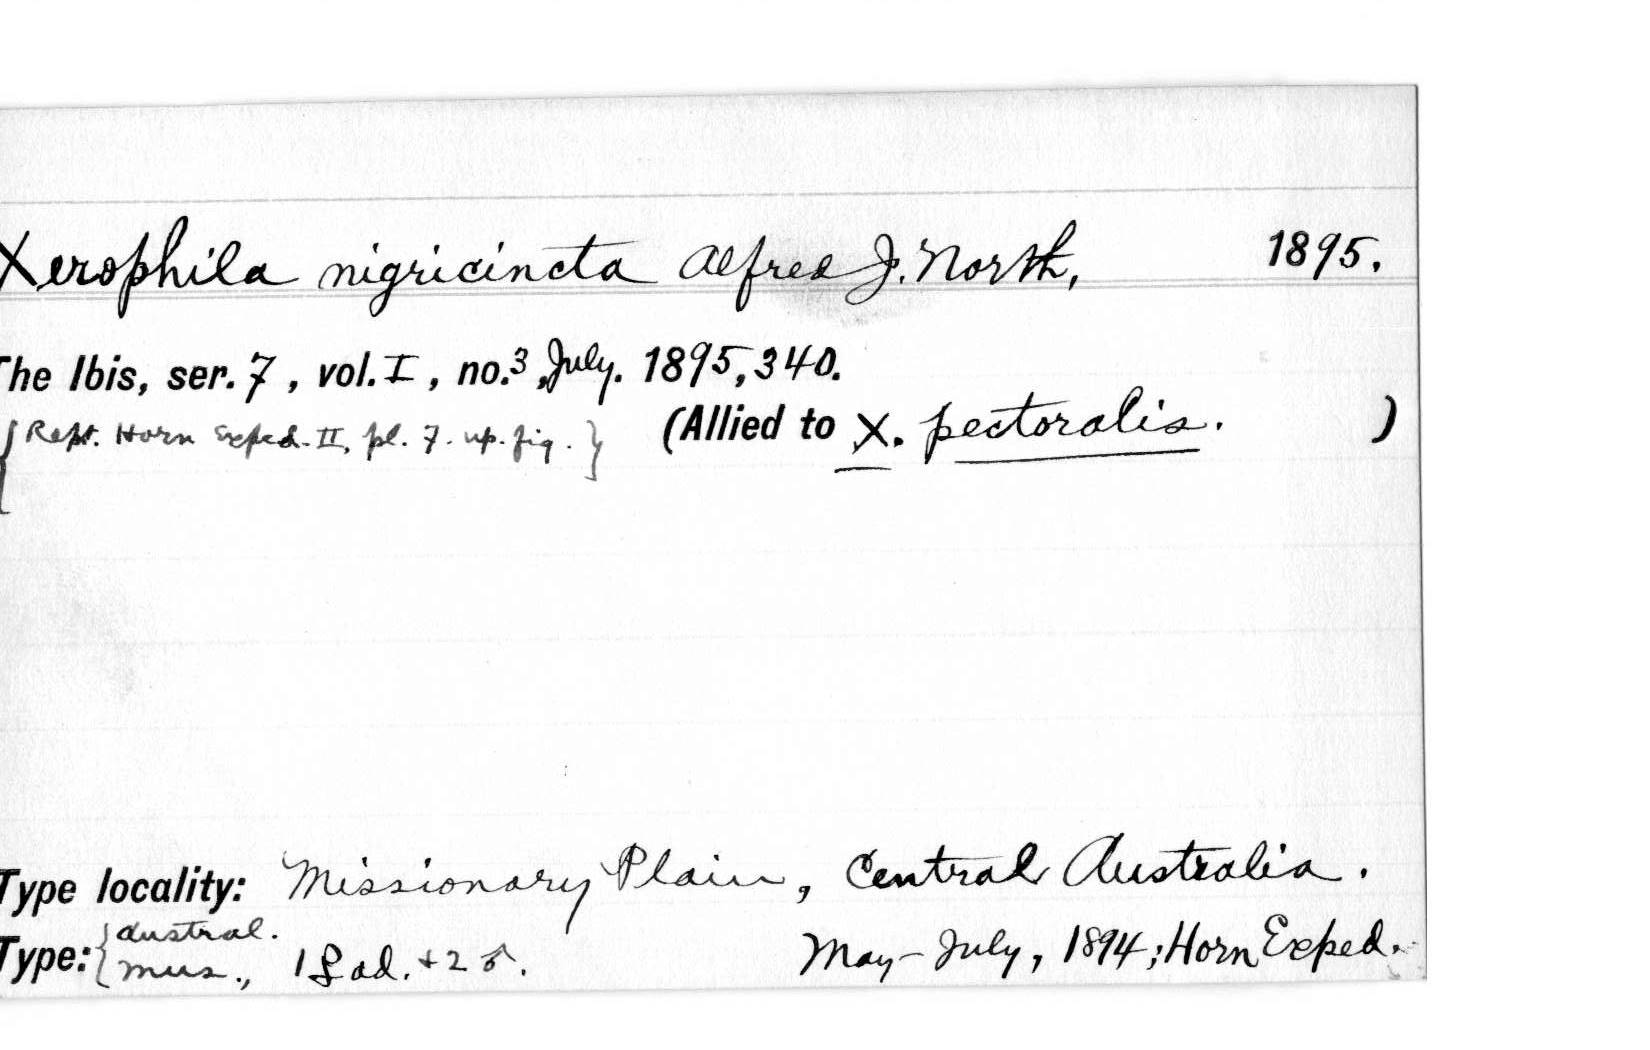 Xerophila nigricincta Alfred J. North, 1895.
The Ibis, ser. 7, vol. I, no. 3, July. 1895, 340.
{Rept. Horn Exped. II, pl. 7. up. fig.} (Allied to X. pectoralis. )
Type locality: Missionary Plain, Central Australia.
Type: {Austral. Mus., 1 ♀ ad. + 2 ♂. May–July, 1894; Horn Exped.